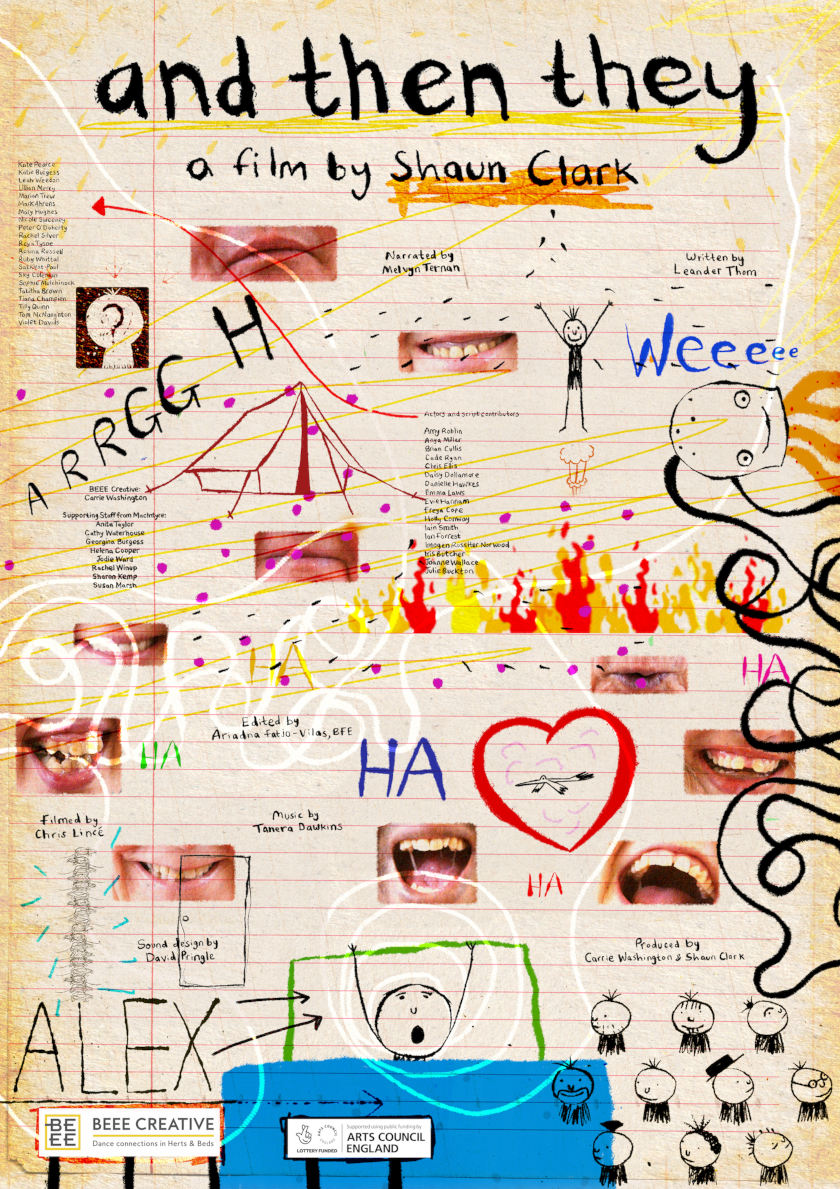 and then they
a film by Shaun Clark
Kate Pearce
Katie Burgess
Leah Weedon
Lillian Merry
Marion Treur
Mark Ahrens
Molly Hughes
Nicole Sweeney
Peter O'Doherty
Rachel Silver
Reya Tysoe
Rosina Russell
Ruby Whittal
Satkirat Paul
Sky Coleman
Sophie Hutchinson
Tabitha Brown
Tiana Champion
Tilly Quinn
Tom McNaginton
Violet Davids
Narrated by
Melvyn Ternan
Written by
Leander Thom
?
ARRGGGH
Weeeee
BEEE Creative:
Carrie Washington
Supporting Staff from MacIntyre:
Anita Taylor
Cathy Waterhouse
Georgina Burgess
Helena Cooper
Jodie Ward
Rachel Winop
Sharon Kemp
Susan Marsh
Actors and script contributors
Amy Roblin
Anya Miller
Brian Cullis
Cade Ryan
Chris Ellis
Daisy Dollamore
Danielle Hawkes
Emma Laws
Evie Hannam
Freya Cope
Holly Conway
Iain Smith
Ian Forrest
Imogen Rossiter Norwood
Iris Butcher
Joanne Wallace
Julie Buckton
HA
HA
Edited by
Ariadna fatjo-Vilas, BFE
HA
HA
Filmed by
Chris Lincé
Music by
Tanera Dawkins
HA
Sound design by
David Pringle
Produced by
Carrie Washington & Shaun Clark
ALEX
BEEE
BEEE CREATIVE
Dance connections in Herts & Beds
LOTTERY FUNDED
Supported using public funding by
ARTS COUNCIL
ENGLAND